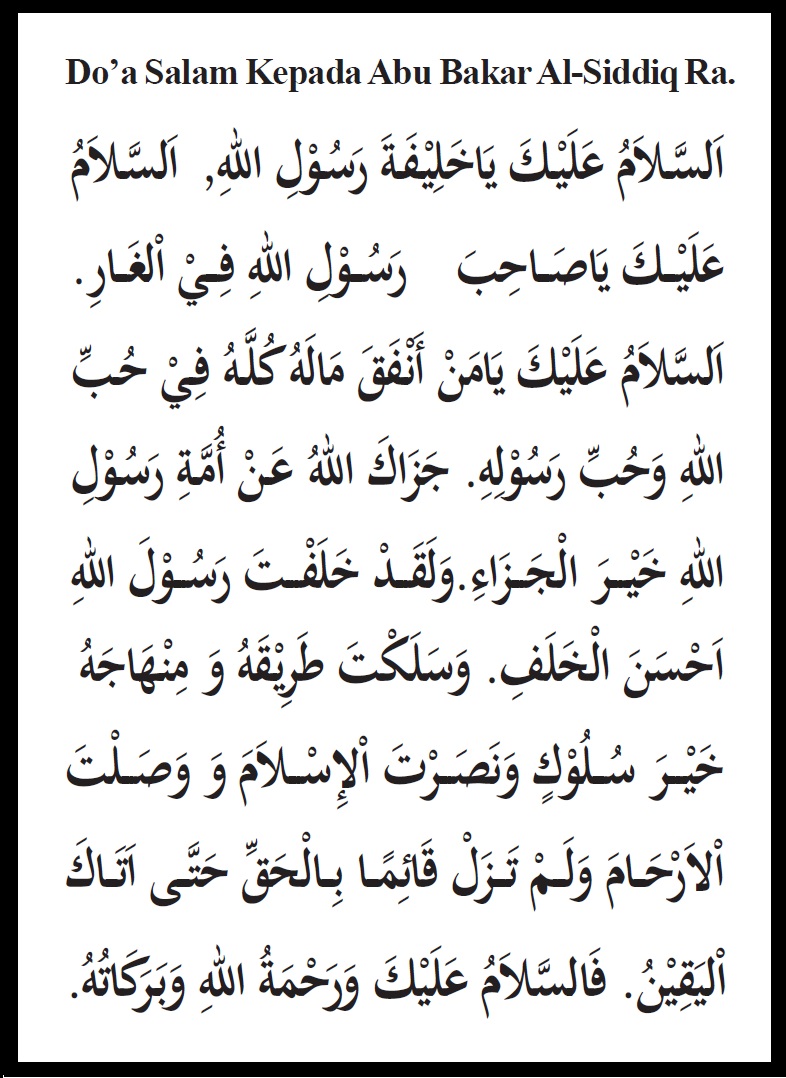 Do’a Salam Kepada Abu Bakar Al-Siddiq Ra.
اَلسَّلاَمُ عَلَيْكَ يَاخَلِيْفَةَ رَسُوْلِ اللهِ, اَلسَّلاَمُ
عَلَيْكَ يَاصَاحِبَ رَسُوْلِ اللهِ فِيْ اْلغَارِ.
اَلسَّلاَمُ عَلَيْكَ يَامَنْ أَنْفَقَ مَالَهُ كُلَّهُ فِيْ حُبِّ
اللهِ وَحُبِّ رَسُوْلِهِ. جَزَاكَ اللهُ عَنْ أُمَّةِ رَسُوْلِ
اللهِ خَيْرَ الْجَزَاءِ.وَلَقَدْ خَلَفْتَ رَسُوْلَ اللهِ
اَحْسَنَ الْخَلَفِ. وَسَلَكْتَ طَرِيْقَهُ وَ مِنْهَاجَهُ
خَيْرَ سُلُوْكٍ وَنَصَرْتَ اْلإِسْلاَمَ وَ وَصَلْتَ
اْلاَرْحَامَ وَلَمْ تَزَلْ قَائِمًا بِالْحَقِّ حَتَّى اَتَاكَ
اْليَقِيْنُ. فَالسَّلاَمُ عَلَيْكَ وَرَحْمَةُ اللهِ وَبَرَكَاتُهُ.